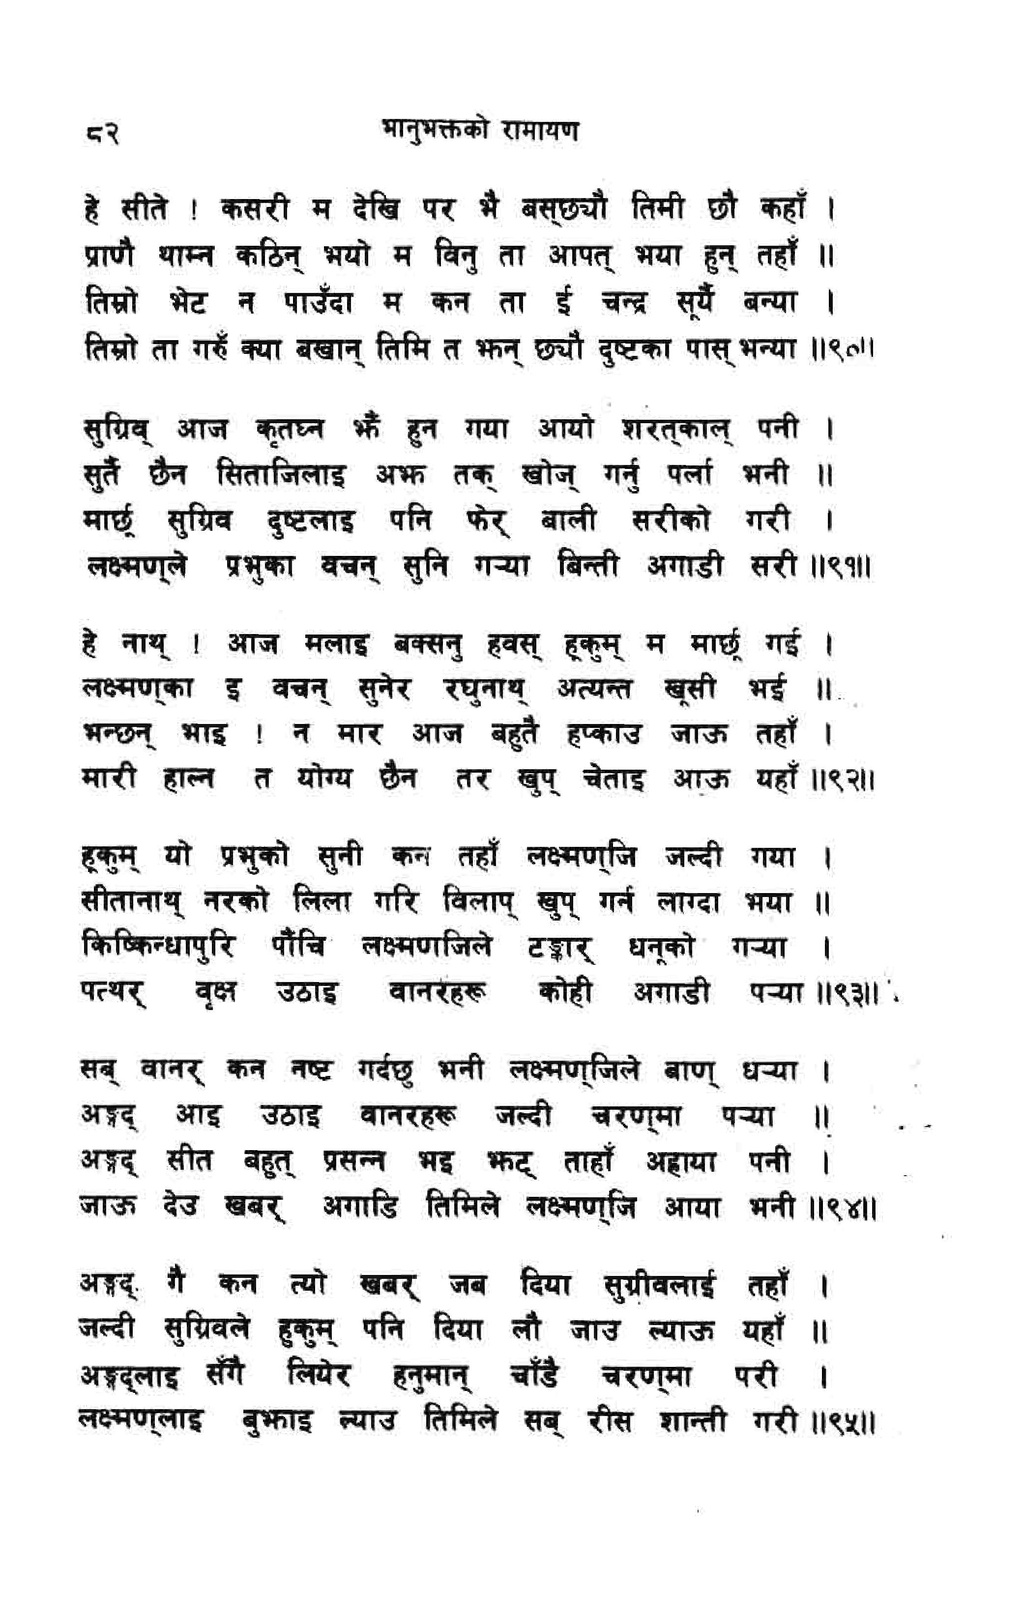 ८२ भानुभक्तको रामायण
हे सीते ! कसरी म देखि पर भै बस्‌छ्यौ तिमी छौ कहाँ ।
प्राणै थाम्न कठिन् भयो म विनु ता आपत् भया हुन् तहाँ ॥
तिम्रो भेट न पाउँदा म कन ता ई चन्द्र सूर्यै बन्या ।
तिम्रो ता गरुँ क्या बखान् तिमि त झन् छ्यौ दुष्टका पास् भन्या ॥९०॥
सुग्रिव् आज कृतघ्न झैं हुन गया आयो शरत्‌काल् पनी ।
सुर्तै छैन सिताजिलाइ अझ तक् खोज् गर्नु पर्ला भनी ॥
मार्छू सुग्रिव दुष्टलाइ पनि फेर् बाली सरीको गरी ।
लक्ष्मण्‌ले प्रभुका वचन् सुनि गर्‍या बिन्ती अगाडी सरी ॥९१॥
हे नाथ् ! आज मलाइ बक्सनु हवस् हूकुम् म मार्छू गई ।
लक्ष्मण्‌का इ वचन् सुनेर रघुनाथ् अत्यन्त खूसी भई ॥
भन्छन् भाइ ! न मार आज बहुतै हप्काउ जाऊ तहाँ ।
मारी हाल्न त योग्य छैन तर खुप् चेताइ आऊ यहाँ ॥९२॥
हूकुम् यो प्रभुको सुनी कन तहाँ लक्ष्मण्‌जि जल्दी गया ।
सीतानाथ् नरको लिला गरि विलाप् खुप् गर्न लाग्दा भया ॥
किष्किन्धापुरि पौंचि लक्ष्मणजिले टङ्कार् धनूको गर्‍या ।
पत्थर् वृक्ष उठाइ वानरहरू कोही अगाडी पर्‍या ॥९३॥
सब् वानर् कन नष्ट गर्दछु भनी लक्ष्मण्‌जिले बाण् धर्‍या ।
अङ्गद् आइ उठाइ वानरहरू जल्दी चरण्‌मा पर्‍या ॥
अङ्गद् सीत बहुत् प्रसन्न भइ झट् ताहाँ अह्राया पनी ।
जाऊ देउ खबर् अगाडि तिमिले लक्ष्मण्‌जि आया भनी ॥९४॥
अङ्गद् गै कन त्यो खबर् जब दिया सुग्रीवलाई तहाँ ।
जल्दी सुग्रिवले हुकुम् पनि दिया लौ जाउ ल्याऊ यहाँ ॥
अङ्गद्‌लाइ सँगै लियेर हनुमान् चाँडै चरण्‌मा परी ।
लक्ष्मण्‌लाइ बुझाइ ल्याउ तिमिले सब् रीस शान्ती गरी ॥९५॥